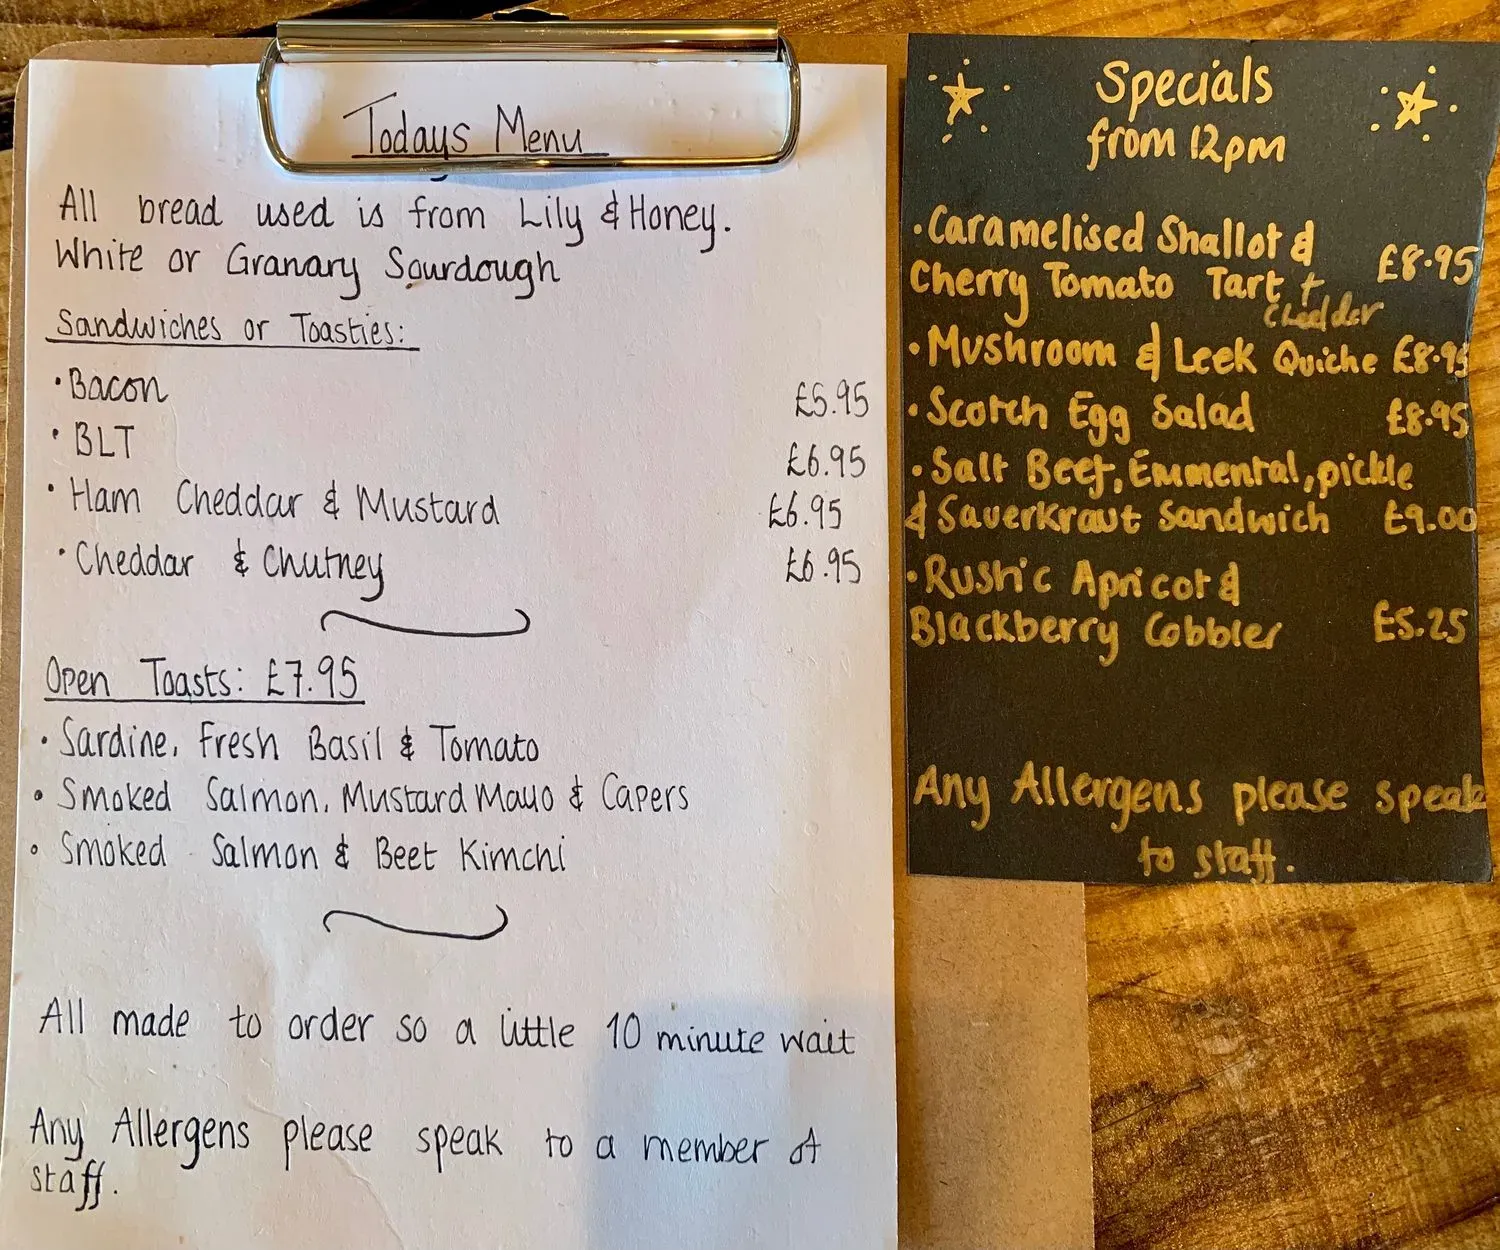 Todays Menu
All bread used is from Lily & Honey.
White or Granary Sourdough
Sandwiches or Toasties:
• Bacon £5.95
• BLT £6.95
• Ham Cheddar & Mustard £6.95
• Cheddar & Chutney £6.95
Open Toasts: £7.95
• Sardine, Fresh Basil & Tomato
• Smoked Salmon, Mustard Mayo & Capers
• Smoked Salmon & Beet Kimchi
All made to order so a little 10 minute wait
Any Allergens please speak to a member of
staff.
Specials
from 12pm
• Caramelised Shallot &
Cherry Tomato Tart + £8.95
Cheddar
• Mushroom & Leek Quiche £8.95
• Scotch Egg Salad £8.95
• Salt Beef, Emmental, pickle
& Sauerkraut Sandwich £9.00
• Rustic Apricot &
Blackberry Cobbler £5.25
Any Allergens please speak
to staff.